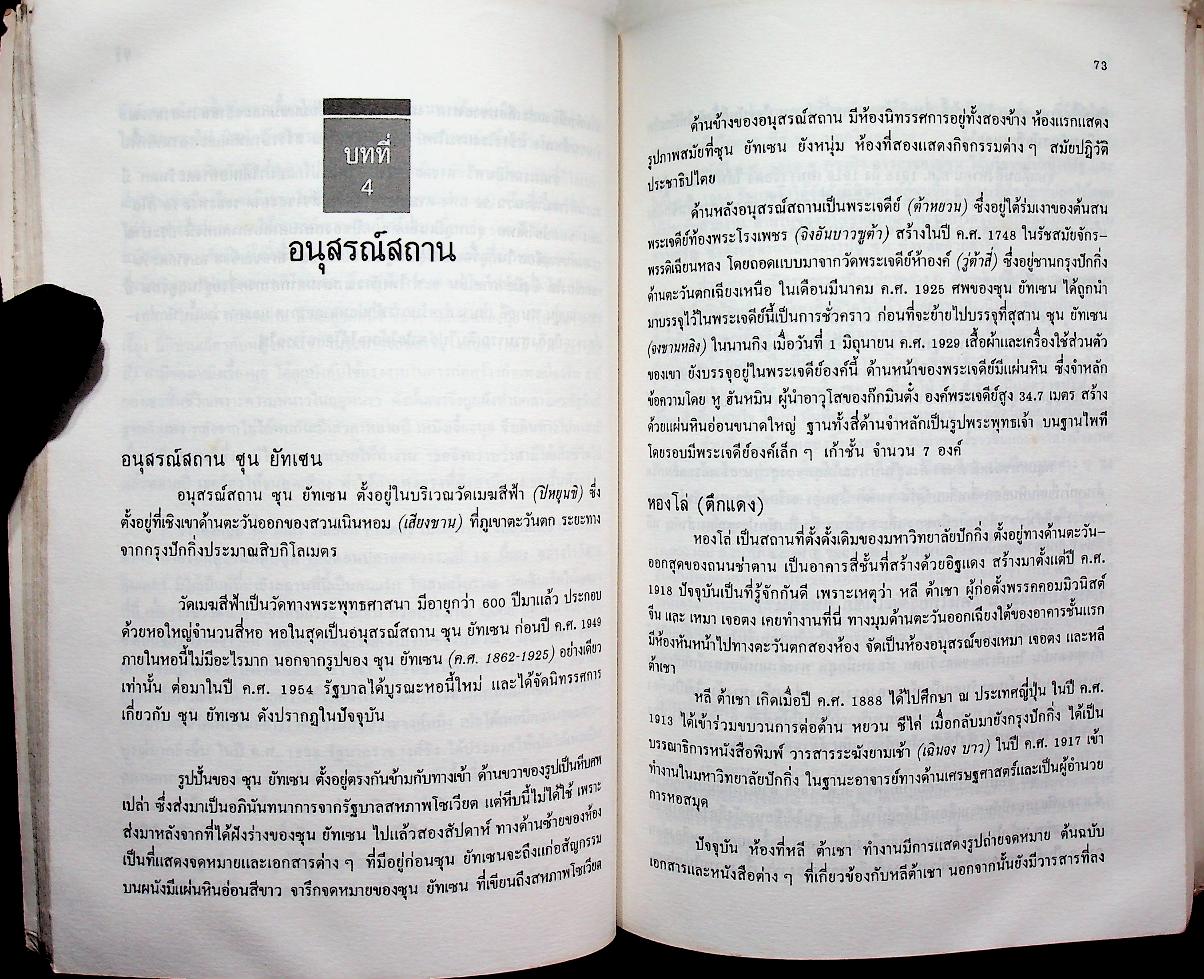 บทที่
4
อนุสรณ์สถาน
อนุสรณ์สถาน ซุน ยัทเซน
อนุสรณ์สถาน ซุน ยัทเซน ตั้งอยู่ในบริเวณวัดเมฆสีฟ้า (ปียุนซี) ซึ่ง
ตั้งอยู่ที่เชิงเขาด้านตะวันออกของสวนเนินหอม (เสียงซาน) ที่ภูเขาตะวันตก ระยะทาง
จากกรุงปักกิ่งประมาณสิบกิโลเมตร
วัดเมฆสีฟ้าเป็นวัดทางพระพุทธศาสนา มีอายุกว่า 600 ปีมาแล้ว ประกอบ
ด้วยหอใหญ่จำนวนสี่หอ หอในสุดเป็นอนุสรณ์สถาน ซุน ยัทเซน ก่อนปี ค.ศ. 1949
ภายในหอนี้ไม่มีอะไรมาก นอกจากรูปของ ซุน ยัทเซน (ค.ศ. 1862-1925) อย่างเดียว
เท่านั้น ต่อมาในปี ค.ศ. 1954 รัฐบาลได้บูรณะหอนี้ใหม่ และได้จัดนิทรรศการ
เกี่ยวกับ ซุน ยัทเซน ดังปรากฏในปัจจุบัน
รูปปั้นของ ซุน ยัทเซน ตั้งอยู่ตรงกันข้ามกับทางเข้า ด้านขวาของรูปเป็นหีบศพ
เปล่า ซึ่งส่งมาเป็นอภินันทนาการจากรัฐบาลสหภาพโซเวียต แต่หีบนี้ไม่ได้ใช้ เพราะ
ส่งมาหลังจากที่ได้ฝังร่างของซุน ยัทเซน ไปแล้วสองสัปดาห์ ทางด้านซ้ายของห้อง
เป็นที่แสดงจดหมายและเอกสารต่าง ๆ ที่มีอยู่ก่อนซุน ยัทเซนจะถึงแก่อสัญกรรม
บนผนังมีแผ่นหินอ่อนสีขาว จารึกจดหมายของซุน ยัทเซน ที่เขียนถึงสหภาพโซเวียต
73
ด้านข้างของอนุสรณ์สถาน มีห้องนิทรรศการอยู่ทั้งสองข้าง ห้องแรกแสดง
รูปภาพสมัยที่ซุน ยัทเซน ยังหนุ่ม ห้องที่สองแสดงกิจกรรมต่าง ๆ สมัยปฏิวัติ
ประชาธิปไตย
ด้านหลังอนุสรณ์สถานเป็นพระเจดีย์ (ต้าหยวน) ซึ่งอยู่ใต้ร่มเงาของต้นสน
พระเจดีย์ท้องพระโรงเพชร (จิงอันบาวซูต้า) สร้างในปี ค.ศ. 1748 ในรัชสมัยจักร–
พรรดิเฉียนหลง โดยถอดแบบมาจากวัดพระเจดีย์ห้าองค์ (วู่ต้าสี่) ซึ่งอยู่ชานกรุงปักกิ่ง
ด้านตะวันตกเฉียงเหนือ ในเดือนมีนาคม ค.ศ. 1925 ศพของซุน ยัทเซน ได้ถูกนำ
มาบรรจุไว้ในพระเจดีย์นี้เป็นการชั่วคราว ก่อนที่จะย้ายไปบรรจุที่สุสาน ซุน ยัทเซน
(จงซานหลิง) ในนานกิง เมื่อวันที่ 1 มิถุนายน ค.ศ. 1929 เสื้อผ้าและเครื่องใช้ส่วนตัว
ของเขา ยังบรรจุอยู่ในพระเจดีย์องค์นี้ ด้านหน้าของพระเจดีย์มีแผ่นหิน ซึ่งจำหลัก
ข้อความโดย หู ฮันหมิน ผู้นำอาวุโสของก๊กมินตั๋ง องค์พระเจดีย์สูง 34.7 เมตร สร้าง
ด้วยแผ่นหินอ่อนขนาดใหญ่ ฐานทั้งสี่ด้านจำหลักเป็นรูปพระพุทธเจ้า บนฐานไพที
โดยรอบมีพระเจดีย์องค์เล็ก ๆ เก้าชั้น จำนวน 7 องค์
หองโล่ (ตึกแดง)
หองโล่ เป็นสถานที่ตั้งดั้งเดิมของมหาวิทยาลัยปักกิ่ง ตั้งอยู่ทางด้านตะวัน–
ออกสุดของถนนซ่าตาน เป็นอาคารสี่ชั้นที่สร้างด้วยอิฐแดง สร้างมาตั้งแต่ปี ค.ศ.
1918 ปัจจุบันเป็นที่รู้จักกันดี เพราะเหตุว่า หลี ต้าเชา ผู้ก่อตั้งพรรคคอมมิวนิสต์
จีน และ เหมา เจอตง เคยทำงานที่นี่ ทางมุมด้านตะวันออกเฉียงใต้ของอาคารชั้นแรก
มีห้องหันหน้าไปทางตะวันตกสองห้อง จัดเป็นห้องอนุสรณ์ของเหมา เจอตง และหลี
ต้าเชา
หลี ต้าเชา เกิดเมื่อปี ค.ศ. 1888 ได้ไปศึกษา ณ ประเทศญี่ปุ่น ในปี ค.ศ.
1913 ได้เข้าร่วมขบวนการต่อต้าน หยวน ชีไค่ เมื่อกลับมายังกรุงปักกิ่ง ได้เป็น
บรรณาธิการหนังสือพิมพ์ วารสารระฆังยามเช้า (เฉินจง บาว) ในปี ค.ศ. 1917 เข้า
ทำงานในมหาวิทยาลัยปักกิ่ง ในฐานะอาจารย์ทางด้านเศรษฐศาสตร์และเป็นผู้อำนวย
การหอสมุด
ปัจจุบัน ห้องที่หลี ต้าเชา ทำงานมีการแสดงรูปถ่ายจดหมาย ต้นฉบับ
เอกสารและหนังสือต่าง ๆ ที่เกี่ยวข้องกับหลีต้าเชา นอกจากนั้นยังมีวารสารที่ลง